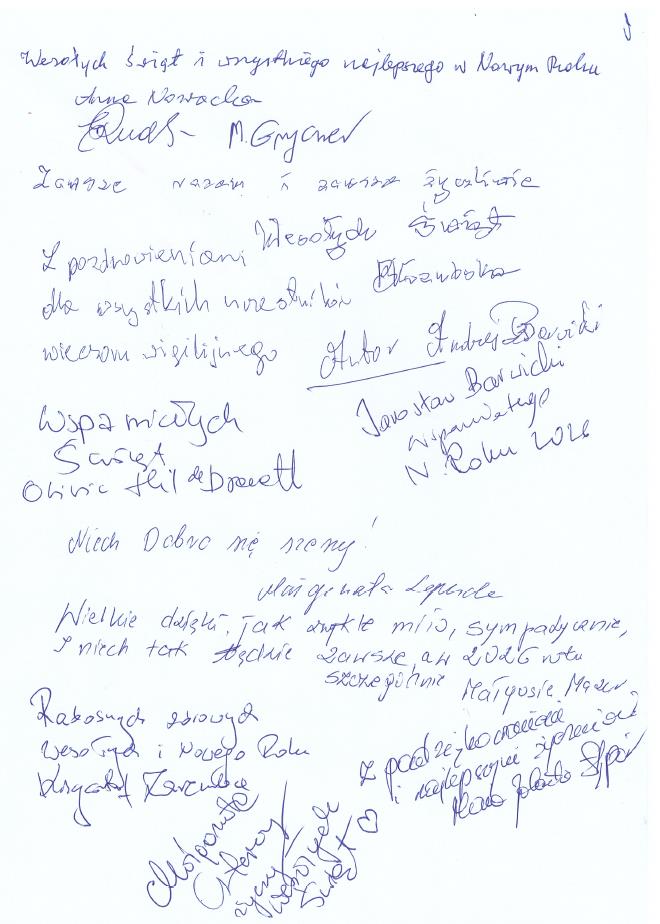 Wesołych Świąt i wszystkiego najlepszego w Nowym Roku
Anna Nowacka
M. Grycner
Zawsze razem i zawsze życzliwie
Z pozdrowieniami
dla wszystkich uczestników
wieczoru wigilijnego
Wesołych Świąt
Autor Andrzej Barwicki
Jarosław Barwicki
Wspaniałego
N. Roku 2026
Wspaniałych
Świąt
Niech Dobro się szerzy!
Małgorzata
Wielkie dzięki, jak zwykle miło, sympatycznie,
I niech tak będzie zawsze, a w 2026 roku
szczególnie Małgosia Mazur
Radosnych zdrowych
Wesołych i Nowego Roku
Krzysztof
Z podziękowaniami
i najlepszymi życzeniami
Małgorzata
życzy
Wesołych
Świąt